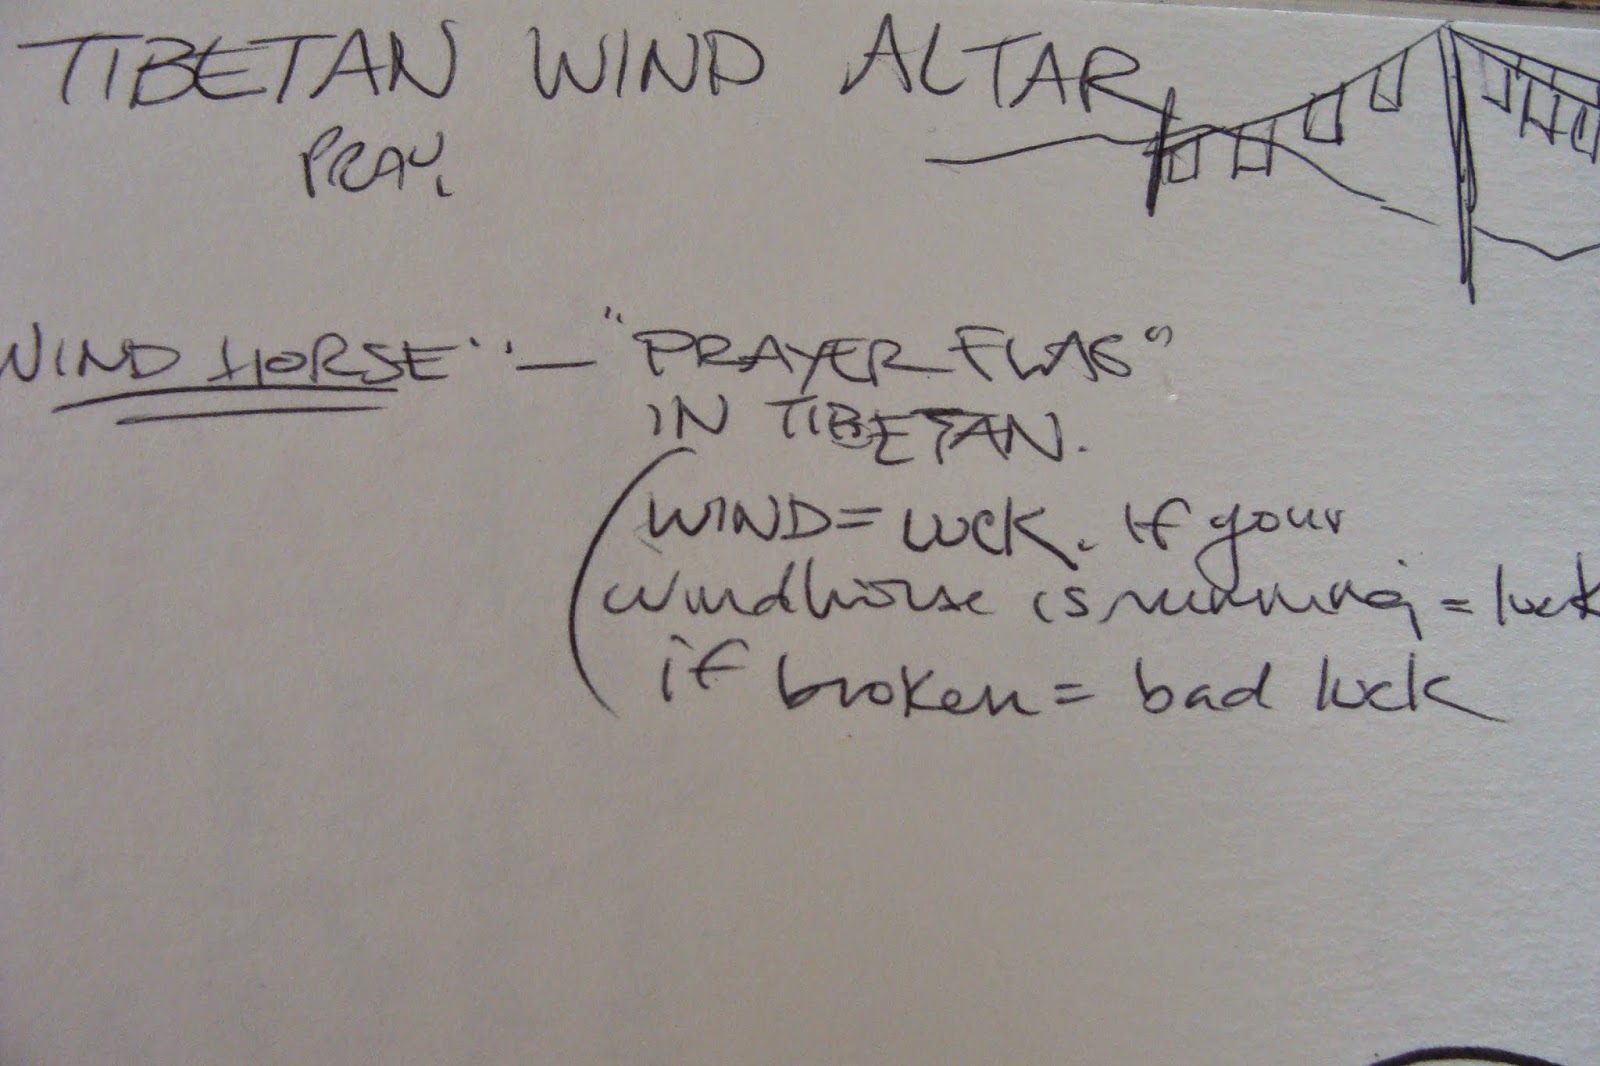 TIBETAN WIND ALTAR
PRAY.
WIND HORSE" — "PRAYER FLAG"
IN TIBETAN.
(WIND = LUCK. If your
windhorse is running = luck
if broken = bad luck